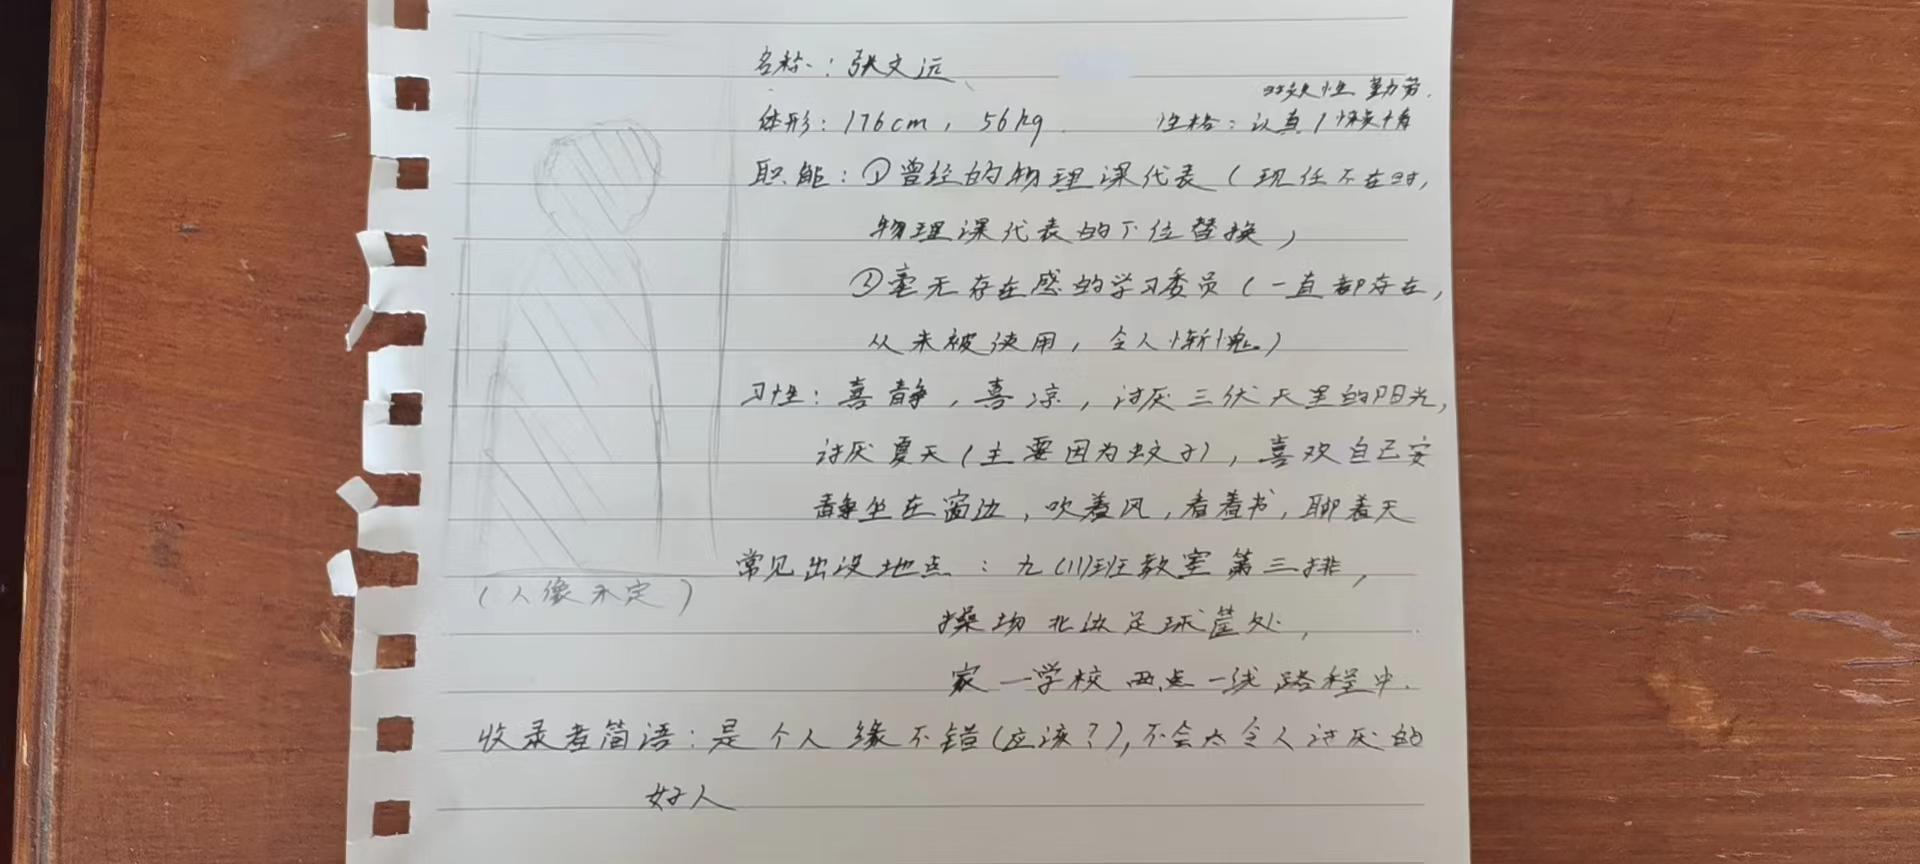 名称：张文远
时效性 勤劳.
体形：176cm，56kg 性格：认真/懒惰
职能：①曾经的物理课代表（现任不在时，
物理课代表的下位替换）
②毫无存在感的学习委员（一直都存在，
从未被使用，令人惭愧。）
习性：喜静，喜凉，讨厌三伏天里的阳光，
讨厌夏天（主要因为蚊子），喜欢自己安
静坐在窗边，吹着风，看着书，聊着天
常见出没地点：九(11)班教室第三排，
操场北边足球筐处，
家—学校两点一线路程中.
（人像未定）
收录者简语：是个人缘不错（应该？），不会太令人讨厌的
好人